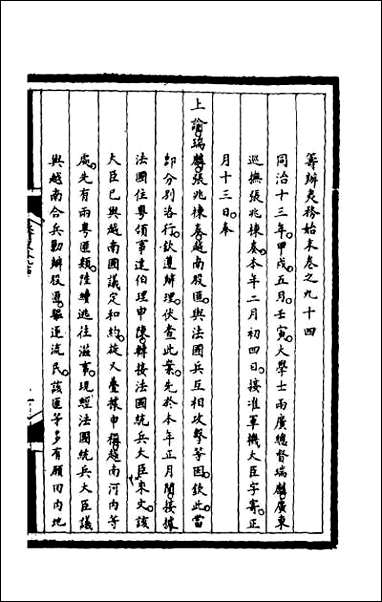 籌辦夷務始末卷之九十四
同治十三年甲戌五月壬寅大學士兩廣總督瑞麟廣東
巡撫張兆棟奏本年二月初四日接准軍機大臣字寄正
月十三日奉
上諭瑞麟張兆棟奏越南股匪與法國兵互相攻擊等因欽此當
即分別洛行欽遵辦理伏查此案先於本年正月間接據
法國住粵領事達伯理申陳轉接法國統兵大臣來文該
大臣已與越南國議定和約旋又疊據申稱越南河內等
處先有兩粵匪類陸續逃往滋事現經法國統兵大臣議
與越南合兵勦辦投遵驅逐流民該匪等多有願回內地